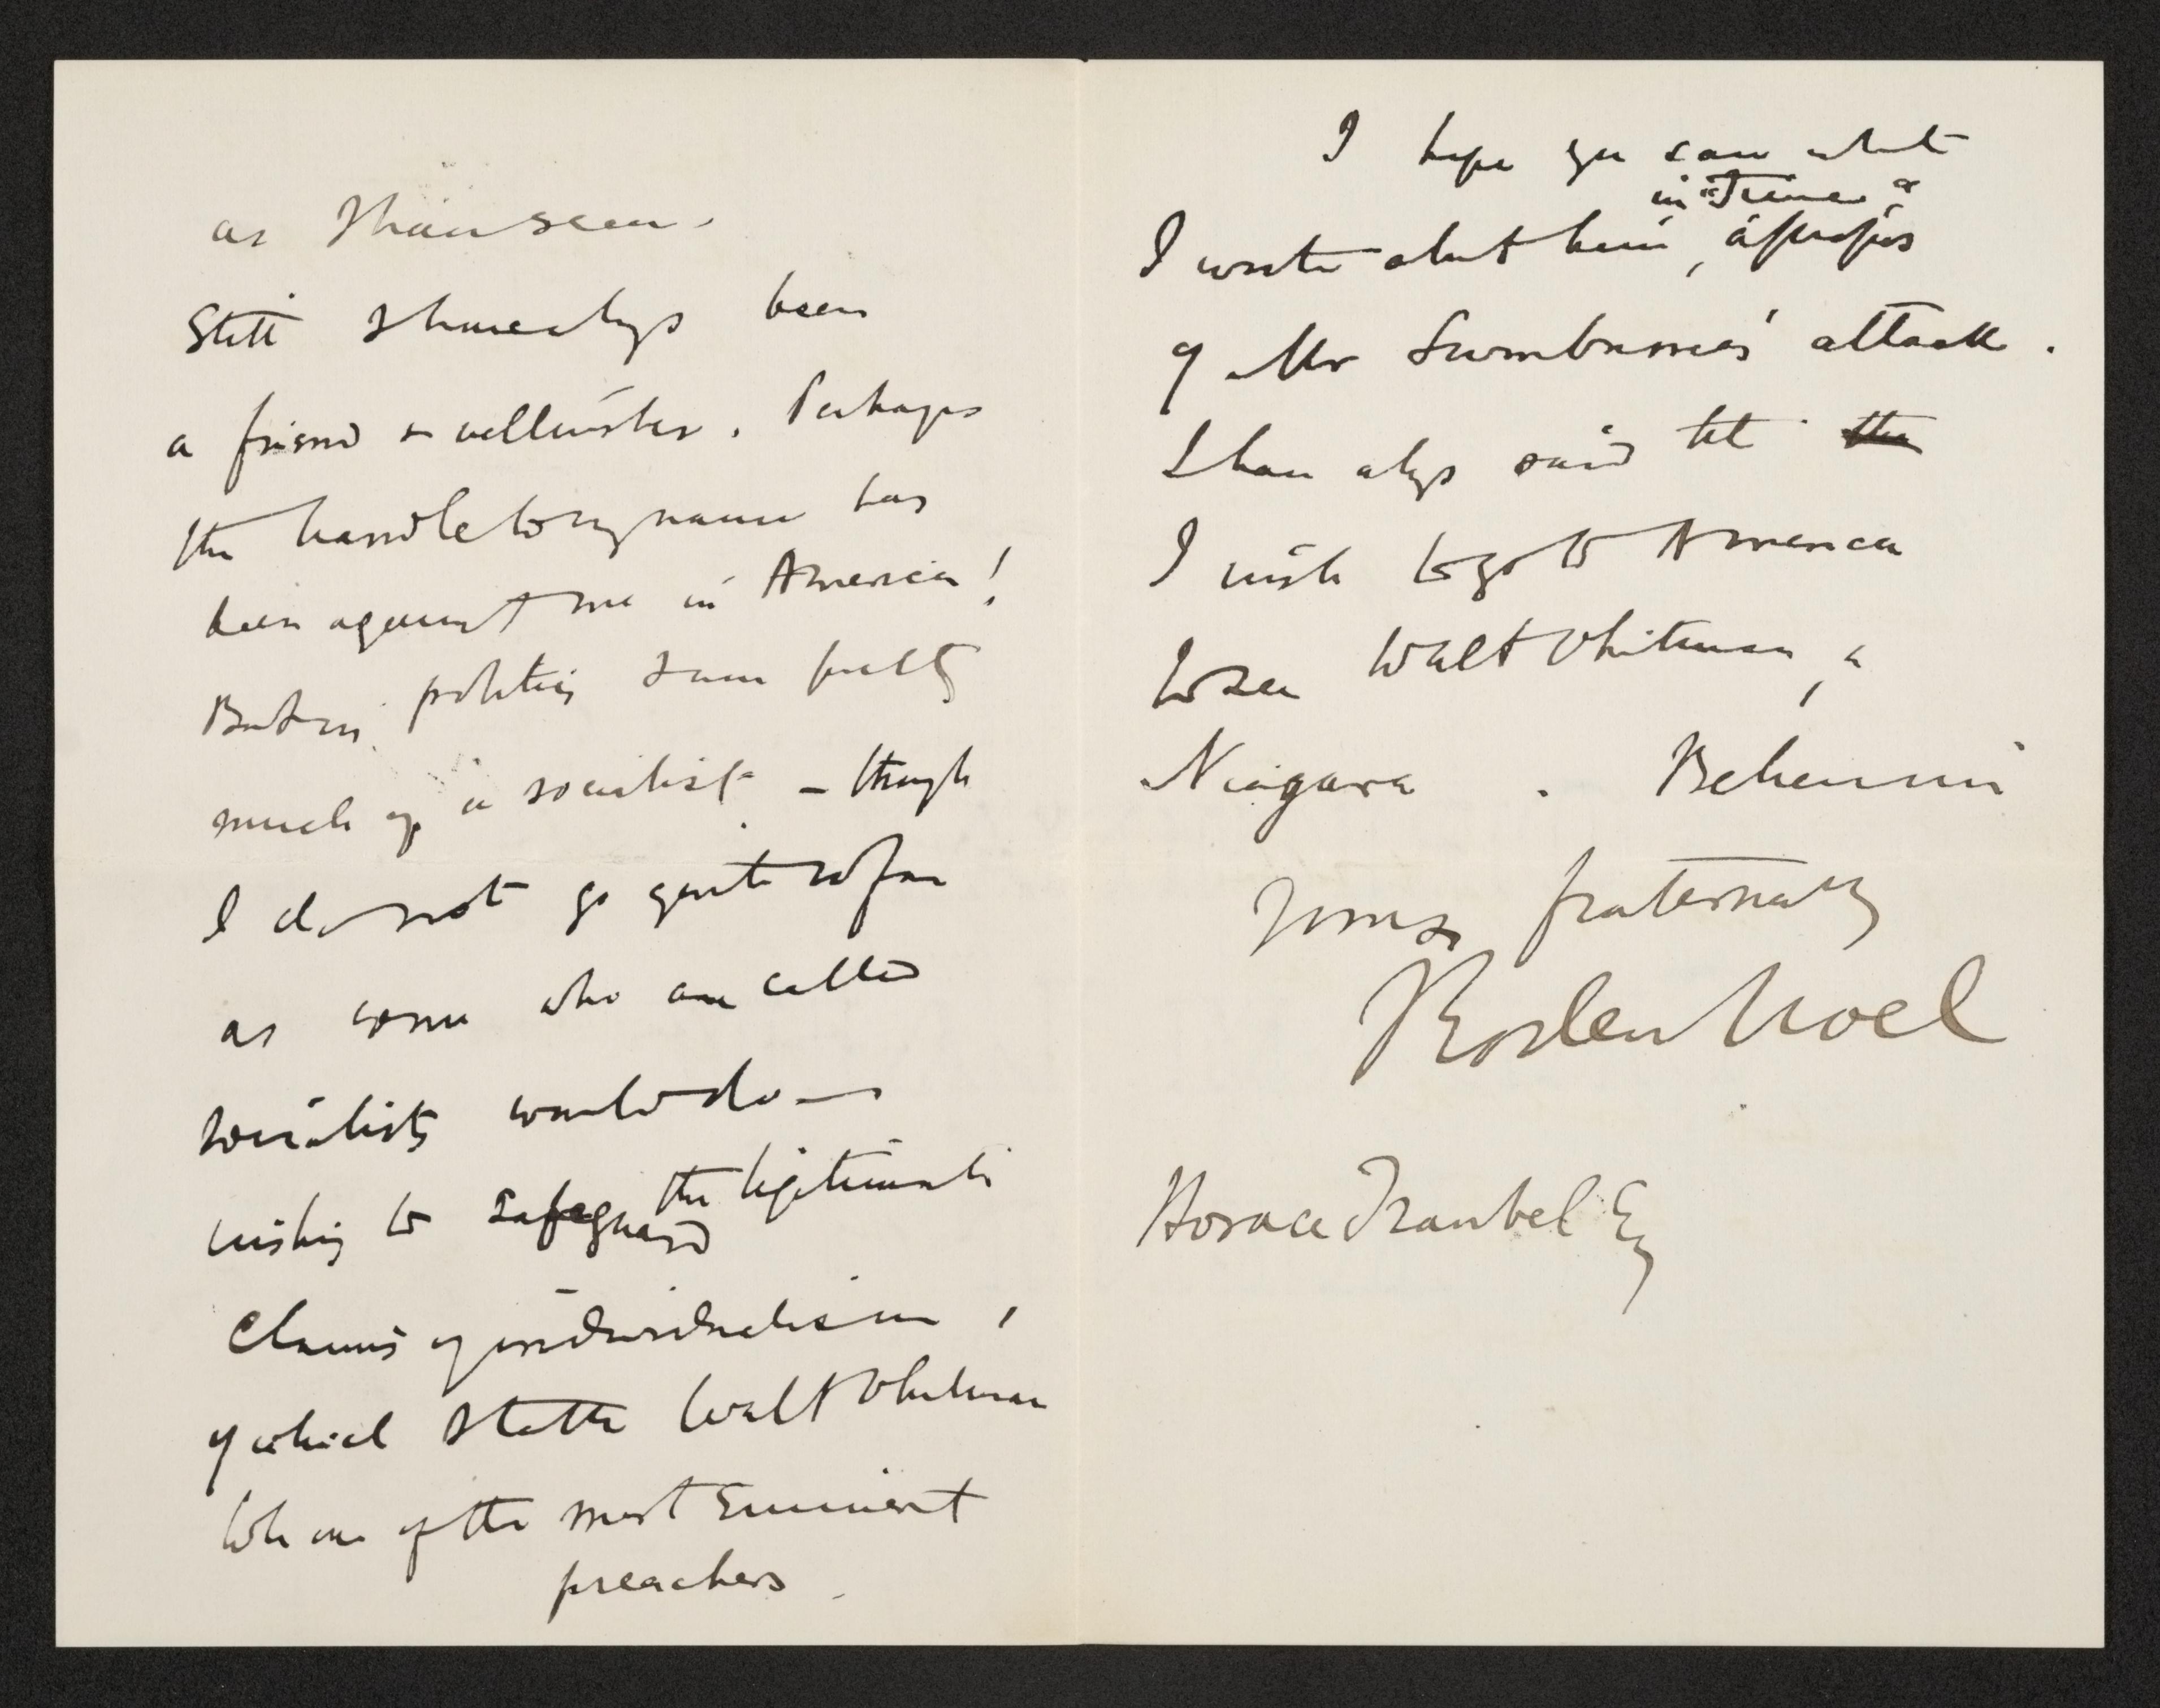 as I have seen.
Still I have always been
a friend & wellwisher. Perhaps
the handle to my name has
been against me in America!
But in politics I am pretty
much of a socialist — though
I do not go quite so far
as some who are called
socialists would do —
wishing to safeguard the legitimate
claims of individualism,
of which I take Walt Whitman
to be one of the most eminent
preachers.
I hope you saw what
I wrote about him in "Time", àpropos
of Mr Swinburne's attack.
I have always said that the
I wish to go to America
to see Walt Whitman, &
Niagara. Believe me
Yours fraternally
Roden Noel
Horace Traubel Esq